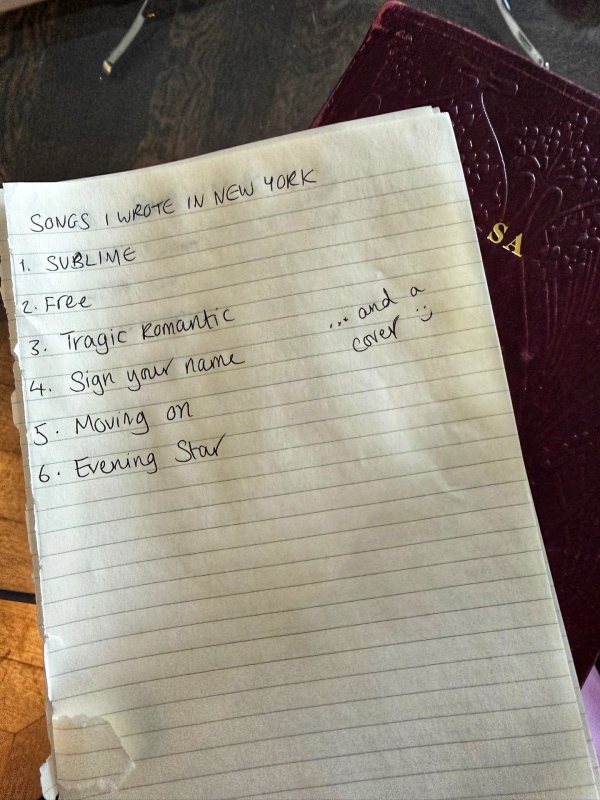 SONGS I WROTE IN NEW YORK
1. SUBLIME
2. Free
3. Tragic Romantic
4. Sign your name
5. Moving on
6. Evening Star
... and a
cover :)
SA